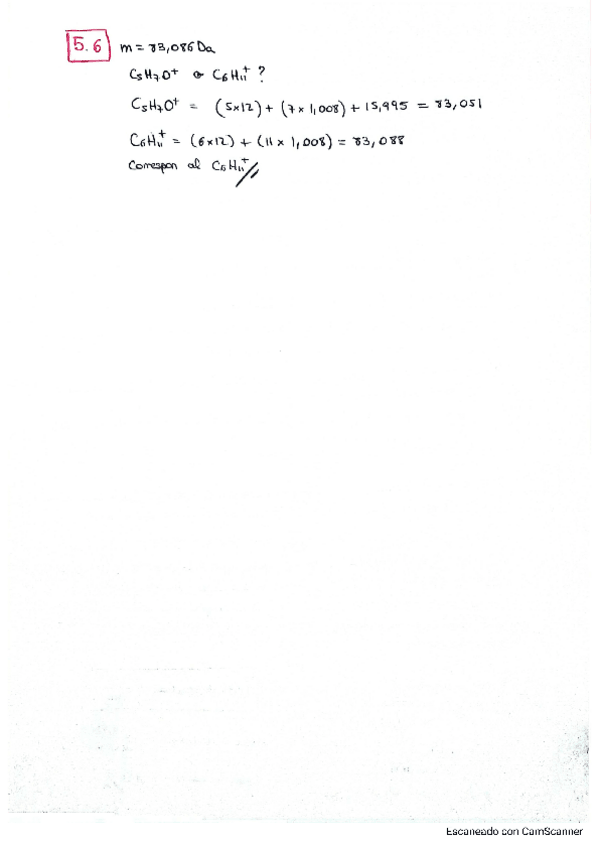 5.6 m = 83,086 Da
C₅H₇O⁺ o C₆H₁₁⁺ ?
C₅H₇O⁺ = (5x12) + (7 x 1,008) + 15,995 = 83,051
C₆H₁₁⁺ = (6x12) + (11 x 1,008) = 83,088
Correspon al C₆H₁₁⁺//
Escaneado con CamScanner